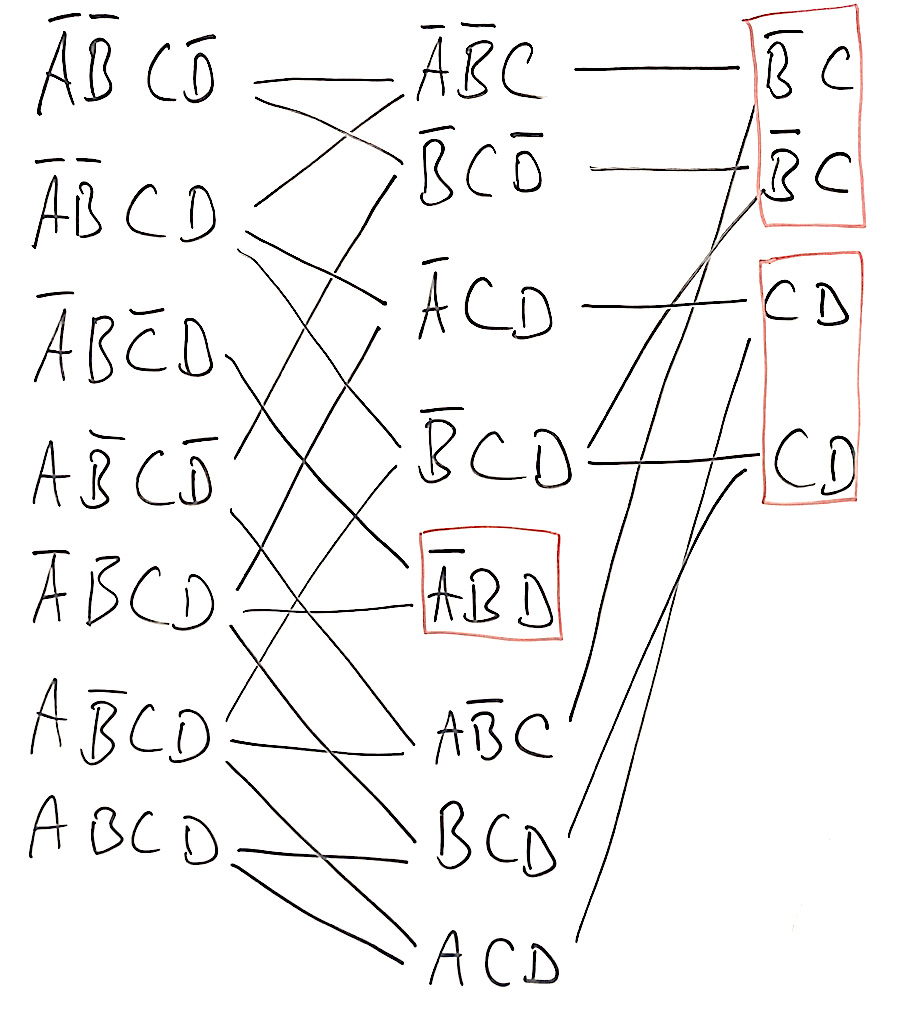 A̅B̅CD̅
A̅B̅CD
A̅BC̅D
AB̅CD̅
A̅BCD
AB̅CD
ABCD
A̅B̅C
B̅CD̅
A̅CD
B̅CD
A̅BD
AB̅C
BCD
ACD
B̅C
B̅C
CD
CD